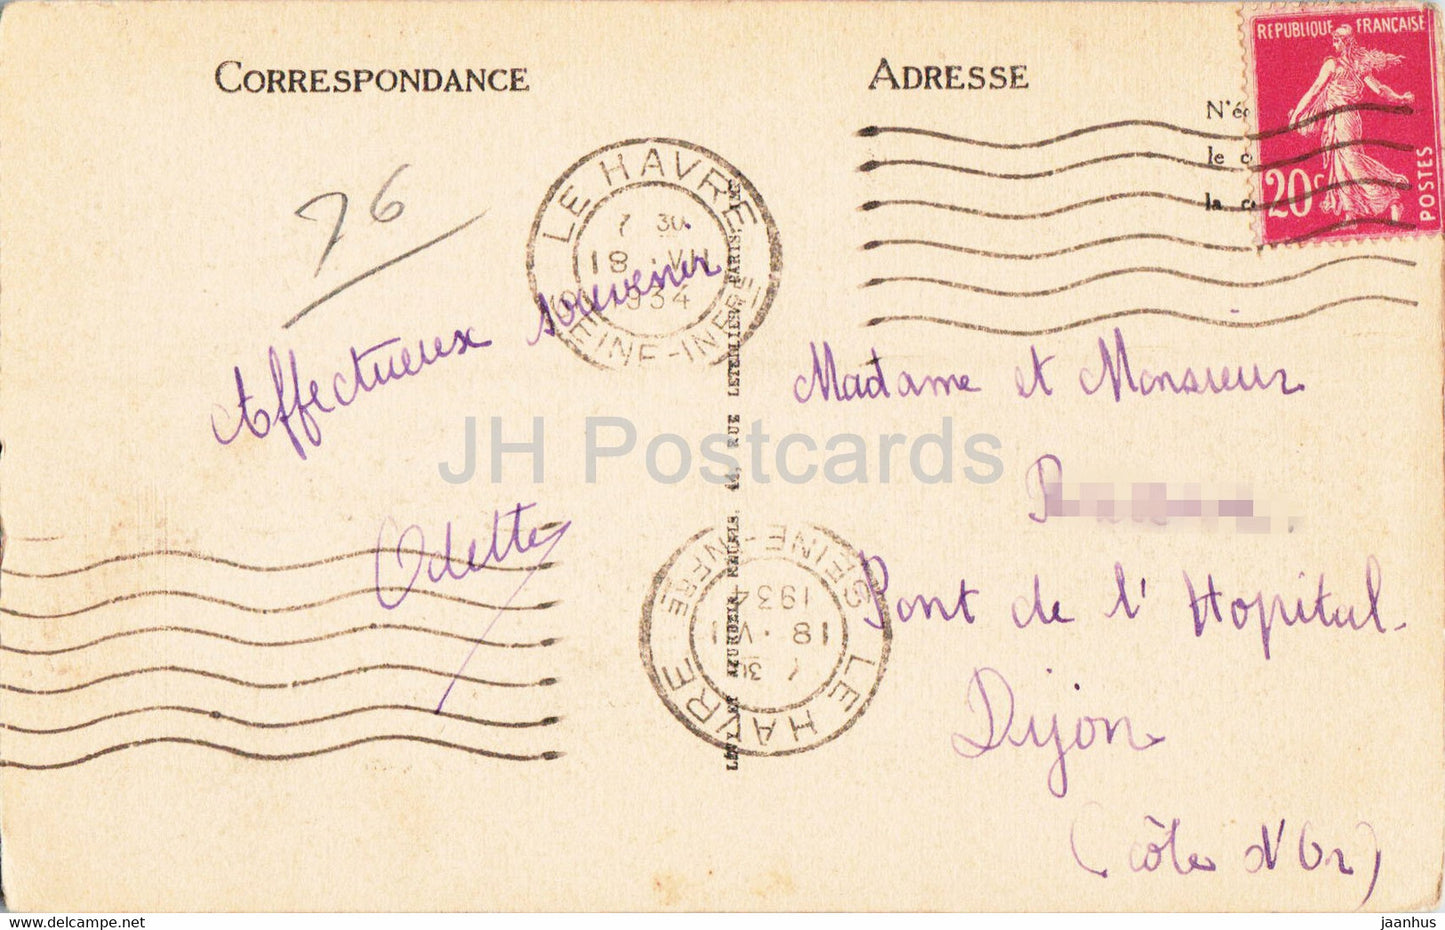 CORRESPONDANCE
ADRESSE
N'é
le
la
REPUBLIQUE FRANÇAISE
20c
POSTES
76
LE HAVRE
7 30
18 · VII
1934
SEINE-INFRE
Affectueux souvenir
Odette
LÉVY ET NEURDEIN RÉUNIS. 44, RUE LETELLIER, PARIS.
LE HAVRE
7 30
18 · VII
1934
SEINE-INFRE
Madame et Monsieur
Pont de l'Hopitul.
Dijon
(Côte d'Or)
JH Postcards
jaanhus